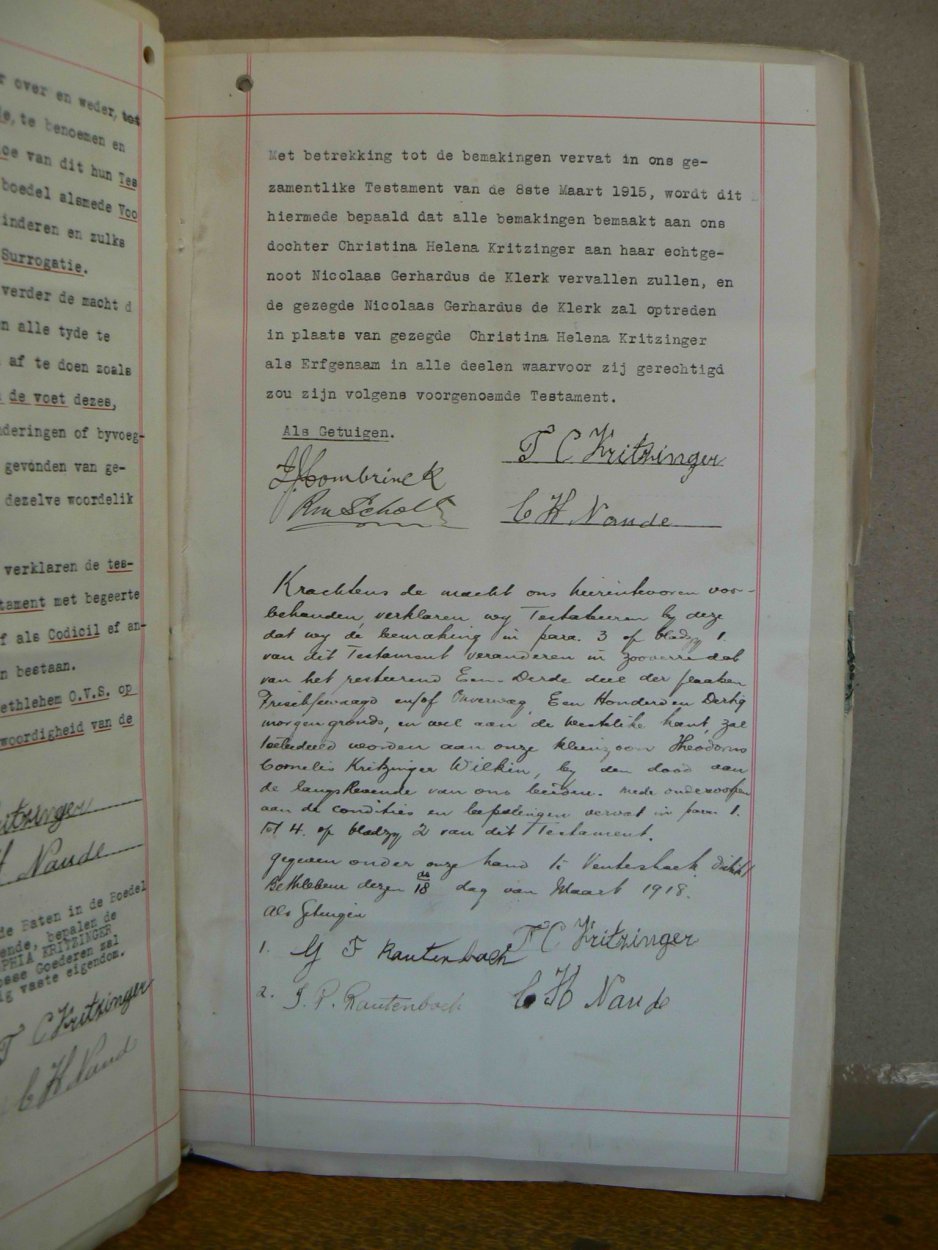 r over en weder, tot
de, te benoemen en
oe van dit hun Tes
boedel alsmede Voo
inderen en zulks
Surrogatie.
verder de macht d
n alle tyde te
af te doen zoals
de voet dezes,
nderingen of byvoeg-
gevonden van ge-
dezelve woordelik
verklaren de tes-
tament met begeerte
f als Codicil ef an-
n bestaan.
ethlehem O.V.S. op
woordigheid van de
ritzinger
H Naude
de Baten in de Boedel
ende, bepalen de
PHIA KRITZINGER
osse Goederen zal
ig vaste eigendom.
T C Kritzinger
C H Naud
Met betrekking tot de bemakingen vervat in ons ge-
zamentlike Testament van de 8ste Maart 1915, wordt dit
hiermede bepaald dat alle bemakingen bemaakt aan ons
dochter Christina Helena Kritzinger aan haar echtge-
noot Nicolaas Gerhardus de Klerk vervallen zullen, en
de gezegde Nicolaas Gerhardus de Klerk zal optreden
in plaats van gezegde Christina Helena Kritzinger
als Erfgenaam in alle deelen waarvoor zij gerechtigd
zou zijn volgens voorgenoemde Testament.
Als Getuigen.
T C Kritzinger
Lombrinck
C H Naude
Krachtens de macht ons hierintevoren voor-
behouden, verklaren wy Testateuren by deze
dat wy de bemaking in para. 3 op bladzy 1.
van dit Testament veranderen in zooverre dat
van het resteerend Een-Derde deel der plaatsen
en/of Onverwag, Een Honderd en Dertig
morgen gronds, en wel aan de westelike kant, zal
toebedeeld worden aan onze kleinzoon Theodorus
Cornelis Kritzinger Wilkin, by den dood van
de langstlevende van ons beiden. mede onderworpen
aan de condities en bepalingen vervat in para 1.
tot 4. op bladzy 2 van dit Testament.
gegeven onder onze hand te Ventershoek distrikt
Bethlehem dezen 18de dag van Maart 1918.
Als Getuigen
1. G F Rautenbach
T C Kritzinger
2. J. P. Rautenbach
C H Naude